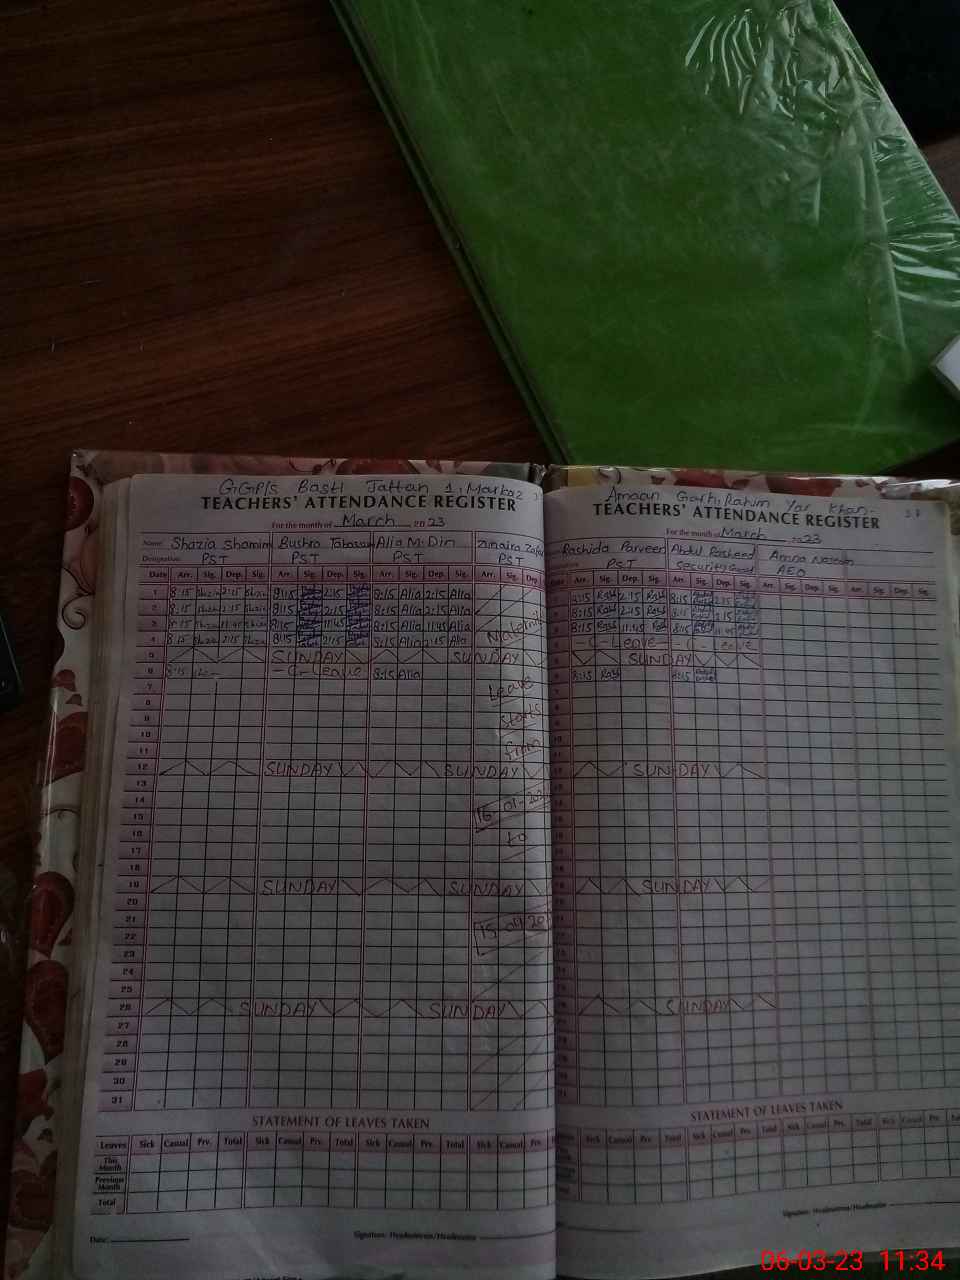 GGP/S Basti Jattan 1, Markaz
TEACHERS' ATTENDANCE REGISTER
For the month of March 2023
Name: Shazia Shamim Bushra Tabasum Alia M. Din Zunaira Zafar
Designation: PST PST PST PST
Date Arr. Sig. Dep. Sig. Arr. Sig. Dep. Sig. Arr. Sig. Dep. Sig. Arr. Sig. Dep.
1 8:15 2:15 8:15 2:15 8:15 Alia 2:15 Alia
2 8:15 2:15 8:15 2:15 8:15 Alia 2:15 Alia
3 8:15 11:45 8:15 11:45 8:15 Alia 11:45 Alia
4 8:15 2:15 8:15 2:15 8:15 Alia 2:15 Alia Maternity
5 SUNDAY SUNDAY
6 8:15 -C- Leave 8:15 Alia
7 Leave
8
9 Starts
10
11 from
12 SUNDAY SUNDAY
13
14
15 16-01-20
16 to
17
18
19 SUNDAY SUNDAY
20
21
22 15-04-20
23
24
25
26 SUNDAY SUNDAY
27
28
29
30
31
STATEMENT OF LEAVES TAKEN
Leaves Sick Casual Prv. Total Sick Casual Prv. Total Sick Casual Prv. Total Sick Casual Prv.
This Month
Previous Month
Total
Date: Signature: Headmistress/Headmaster
Amaan Garh, Rahim Yar Khan-
TEACHERS' ATTENDANCE REGISTER
For the month of March 2023
Rashida Parveen Abdul Rasheed Amna Naseem
PST Security Guard AEO
Date Arr. Sig. Dep. Sig. Arr. Sig. Dep. Sig. Arr. Sig. Dep. Sig. Arr. Sig. Dep. Sig.
8:15 Rash 2:15 Rash 8:15 2:15
8:15 Rash 2:15 Rash 8:15 2:15
8:15 Rash 11:45 Rash 8:15 11:45
-C- Leave- -C- Leave
SUNDAY
8:15 Rash 8:15
SUNDAY
SUNDAY
SUNDAY
STATEMENT OF LEAVES TAKEN
Sick Casual Prv. Total Sick Casual Prv. Total Sick Casual Prv. Total Sick Casual Prv. Total
Signature: Headmistress/Headmaster
06-03-23 11:34